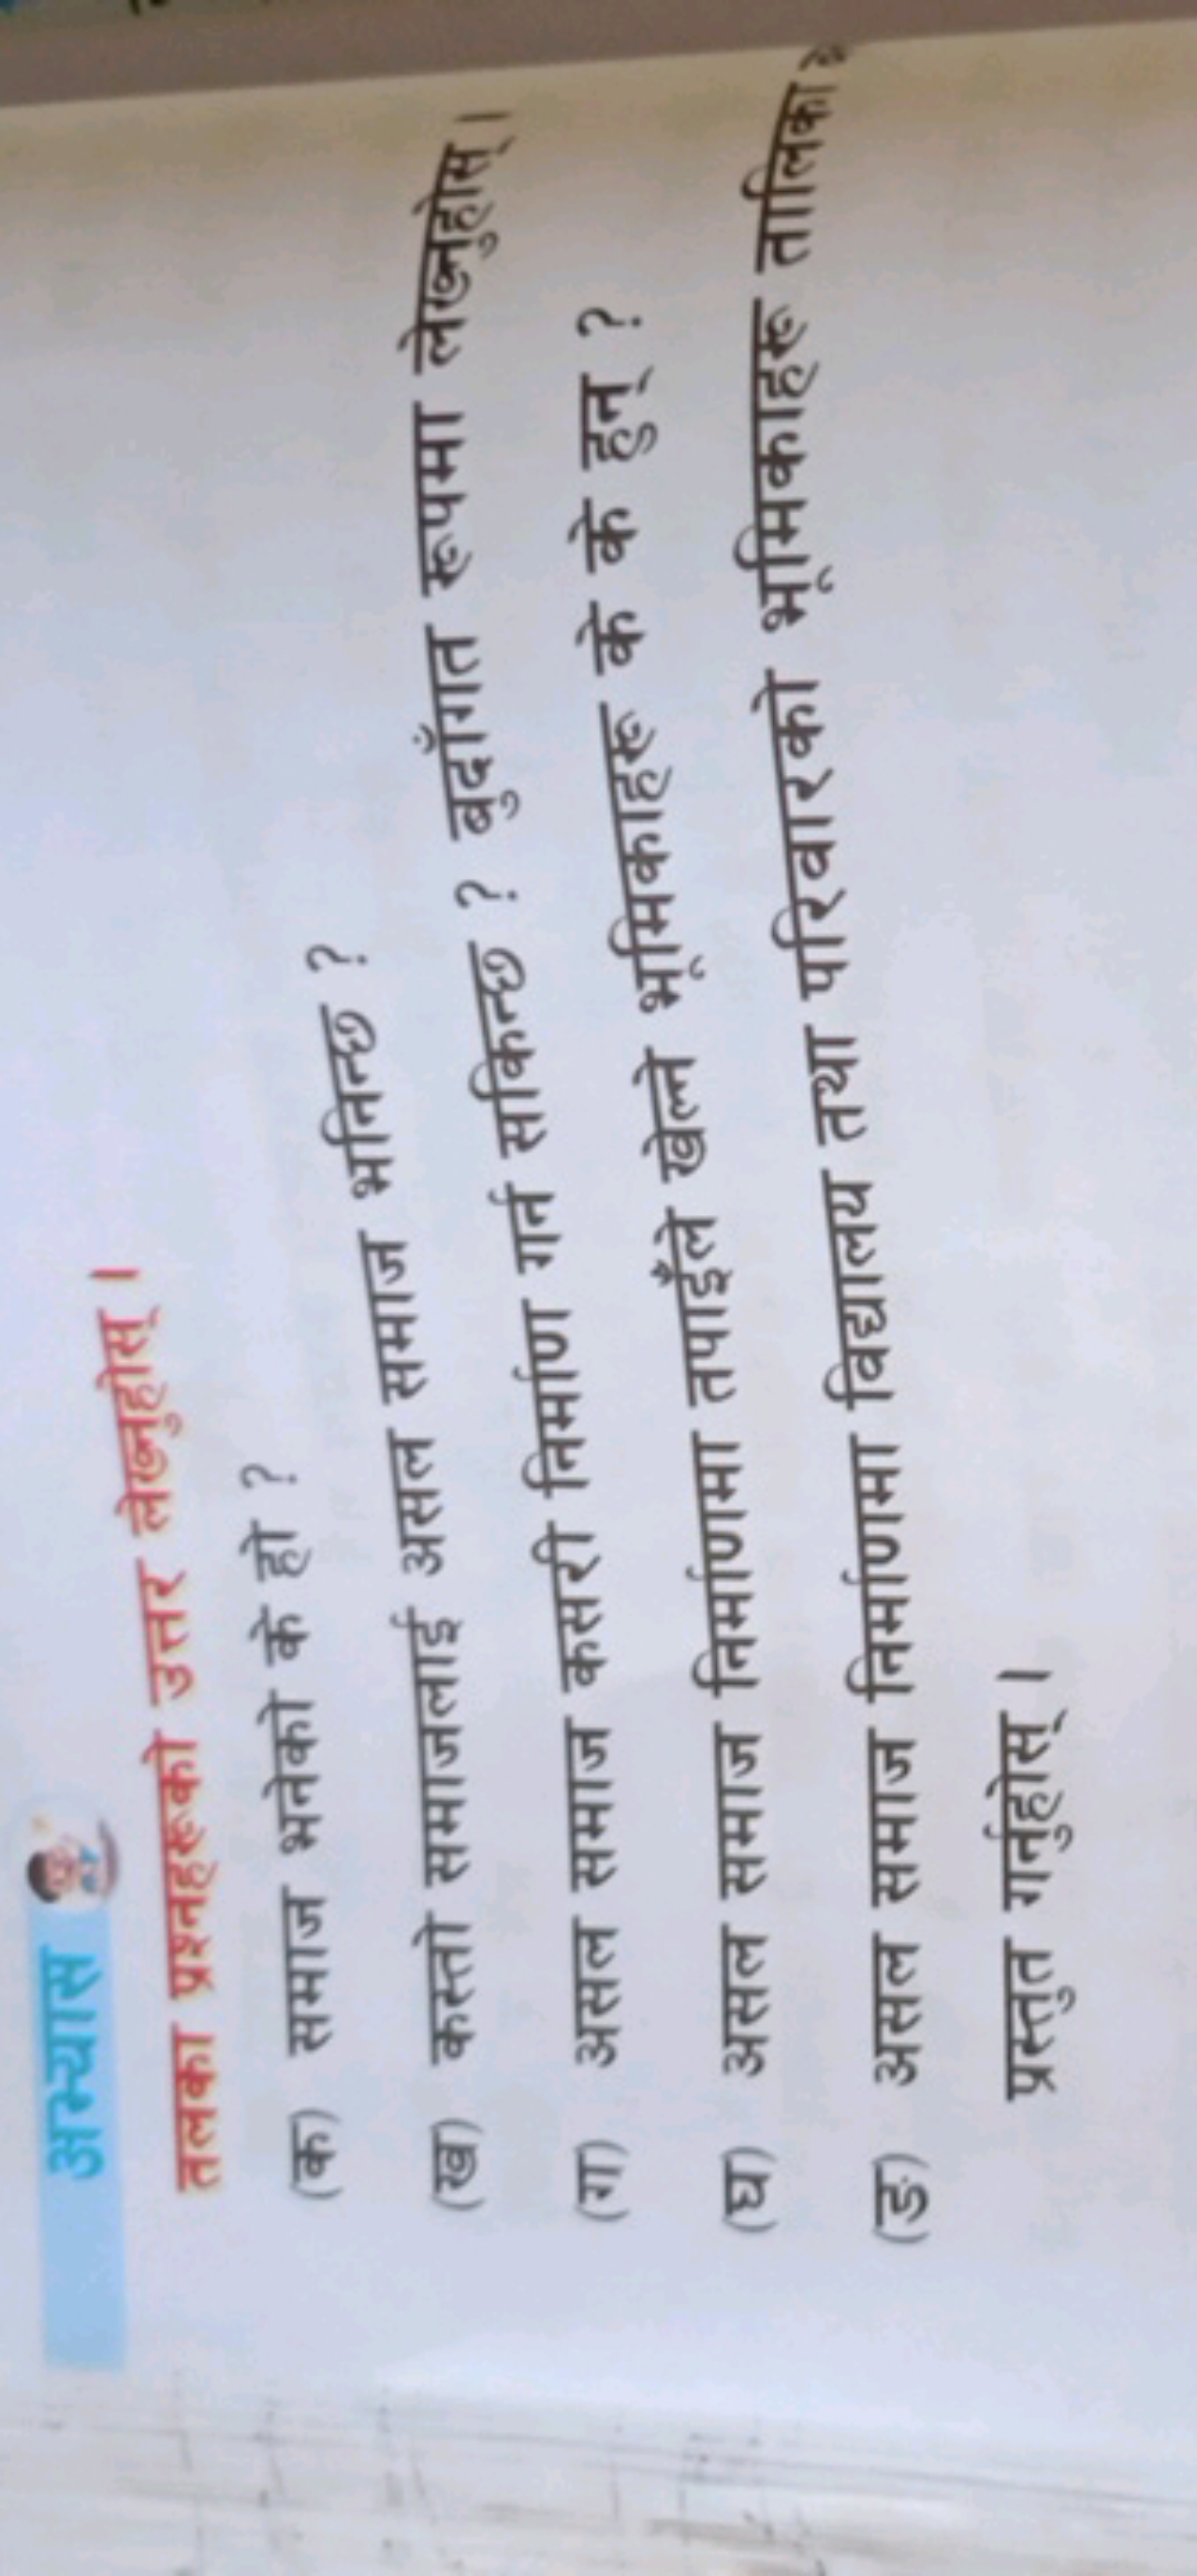 अभ्यास
तलका प्रश्नहरूको उत्तर लेख्नुहोस् ।
(क) समाज भनेको के हो ?
(ख) कस्तो समाजलाई असल समाज भनिन्छ ?
(ग) असल समाज कसरी निर्माण गर्न सकिन्छ ? बुदाँगत रूपमा लेख्नुहोस् ।
(घ) असल समाज निर्माणमा तपाईँले खेल्ने भूमिकाहरू के के हुन् ?
(ङ) असल समाज निर्माणमा विद्यालय तथा परिवारको भूमिकाहरू तालिका
प्रस्तुत गर्नुहोस् ।